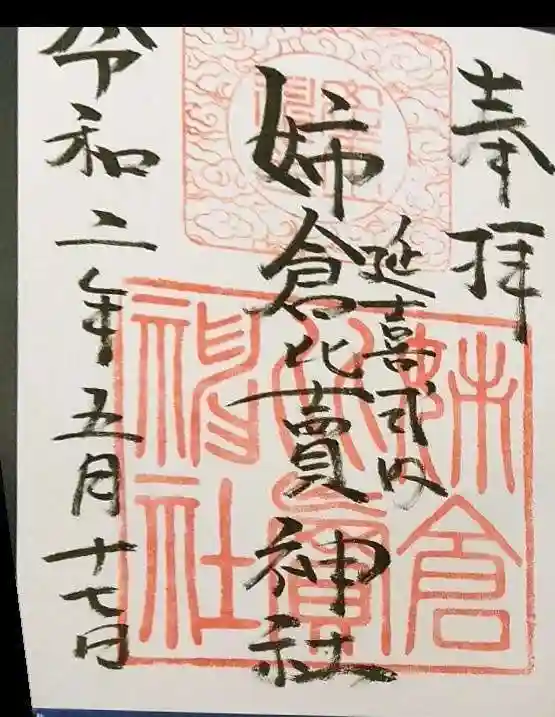 奉拝
延喜式内
姉倉比賣神社
令和二年五月十七日
姉倉比賣神社